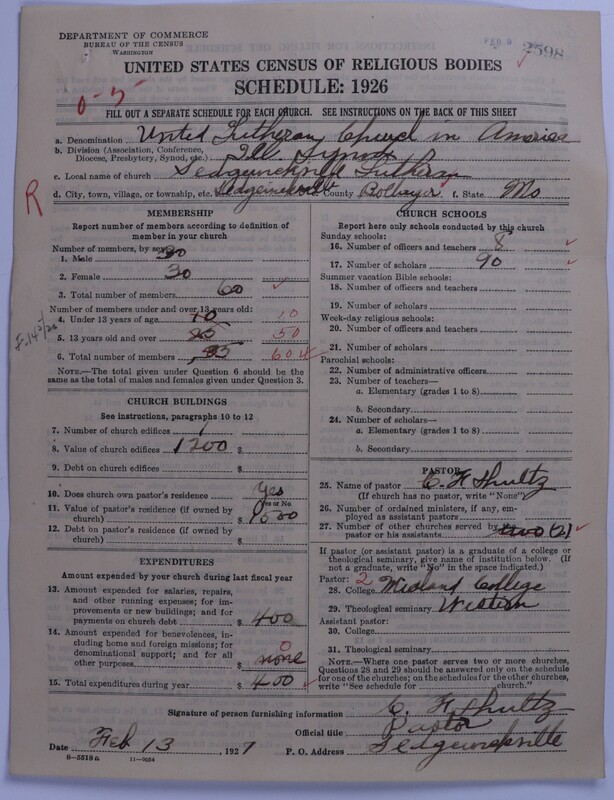 DEPARTMENT OF COMMERCE
BUREAU OF THE CENSUS
WASHINGTON
2598
UNITED STATES CENSUS OF RELIGIOUS BODIES
SCHEDULE: 1926
FILL OUT A SEPARATE SCHEDULE FOR EACH CHURCH. SEE INSTRUCTIONS ON THE BACK OF THIS SHEET
a. Denomination United Lutheran Church in America
b. Division (Association, Conference,
Diocese, Presbytery, Synod, etc.) Ill Synod
c. Local name of church Sedgewickville Lutheran
d. City, town, village, or township, etc. Sedgewickville County Bollinger f. State Mo
R
MEMBERSHIP
Report number of members according to definition of
member in your church
Number of members, by sex:
1. Male 30
2. Female 30
3. Total number of members 60
Number of members under and over 13 years old:
4. Under 13 years of age 10 10
5. 13 years old and over 25 50
6. Total number of members 35 60
NOTE.—The total given under Question 6 should be
the same as the total of males and females given under Question 3.
CHURCH BUILDINGS
See instructions, paragraphs 10 to 12
7. Number of church edifices 1
8. Value of church edifices 1200 $
9. Debt on church edifices $
10. Does church own pastor's residence Yes
Yes or No
11. Value of pastor's residence (if owned by
church) $ 1500
12. Debt on pastor's residence (if owned by
church) $
EXPENDITURES
Amount expended by your church during last fiscal year
13. Amount expended for salaries, repairs,
and other running expenses; for im-
provements or new buildings; and for
payments on church debt $ 400
14. Amount expended for benevolences, in-
cluding home and foreign missions; for
denominational support; and for all
other purposes $ none 0
15. Total expenditures during year $ 400
CHURCH SCHOOLS
Report here only schools conducted by this church
Sunday schools:
16. Number of officers and teachers 8
17. Number of scholars 90
Summer vacation Bible schools:
18. Number of officers and teachers
19. Number of scholars
Week-day religious schools:
20. Number of officers and teachers
21. Number of scholars
Parochial schools:
22. Number of administrative officers
23. Number of teachers—
a. Elementary (grades 1 to 8)
b. Secondary
24. Number of scholars—
a. Elementary (grades 1 to 8)
b. Secondary
PASTOR
25. Name of pastor C. F. Shultz
(If church has no pastor, write "None")
26. Number of ordained ministers, if any, em-
ployed as assistant pastors
27. Number of other churches served by
pastor or his assistants two (2)
If pastor (or assistant pastor) is a graduate of a college or
theological seminary, give name of institution below. (If
not a graduate, write "No" in the space indicated.)
Pastor: 2
28. College Midland College
29. Theological seminary Western
Assistant pastor:
30. College
31. Theological seminary
NOTE.—Where one pastor serves two or more churches,
Questions 28 and 29 should be answered only on the schedule
for one of the churches; on the schedules for the other churches,
write "See schedule for church."
Signature of person furnishing information C. F. Shultz
Official title Pastor
Date Feb 13, 1927 P. O. Address Sedgewickville
8—5518a 11—9054